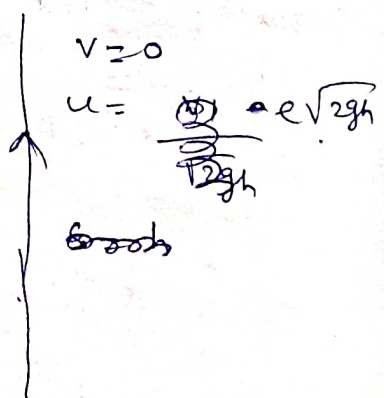 v=0
u= e√2gh